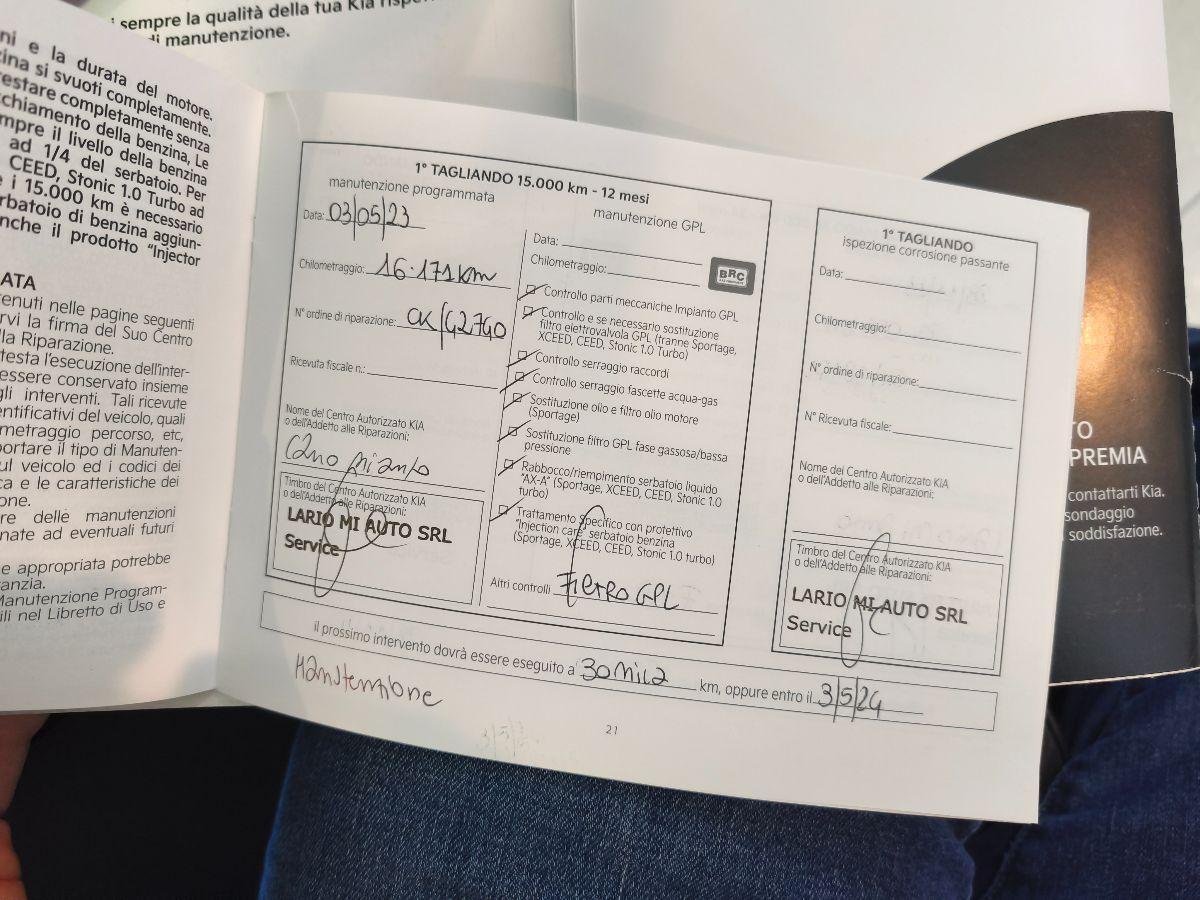 sempre la qualità della tua Kia
di manutenzione.
ni e la durata del motore.
zina si svuoti completamente.
restare completamente senza
cchiamento della benzina, Le
mpre il livello della benzina
ad 1/4 del serbatoio. Per
CEED, Stonic 1.0 Turbo ad
e i 15.000 km è necessario
rbatoio di benzina aggiun-
nche il prodotto "Injector
ATA
enuti nelle pagine seguenti
rvi la firma del Suo Centro
lla Riparazione.
testa l'esecuzione dell'inter-
essere conservato insieme
gli interventi. Tali ricevute
entificativi del veicolo, quali
ometraggio percorso, etc,
portare il tipo di Manuten-
ul veicolo ed i codici dei
ca e le caratteristiche dei
one.
re delle manutenzioni
nate ad eventuali futuri
e appropriata potrebbe
anzia.
Manutenzione Program-
ili nel Libretto di Uso e
1° TAGLIANDO 15.000 km - 12 mesi
manutenzione programmata
Data: 03/05/23
Chilometraggio: 16.171km
N° ordine di riparazione: CK/G2740
Ricevuta fiscale n.:
Nome del Centro Autorizzato KIA
o dell'Addetto alle Riparazioni:
Timbro del Centro Autorizzato KIA
o dell'Addetto alle Riparazioni:
LARIO MI AUTO SRL
Service
manutenzione GPL
Data:
Chilometraggio:
BRC
Controllo parti meccaniche Impianto GPL
Controllo e se necessario sostituzione
filtro elettrovalvola GPL (tranne Sportage,
XCEED, CEED, Stonic 1.0 Turbo)
Controllo serraggio raccordi
Controllo serraggio fascette acqua-gas
Sostituzione olio e filtro olio motore
(Sportage)
Sostituzione filtro GPL fase gassosa/bassa
pressione
Rabbocco/riempimento serbatoio liquido
"AX-A" (Sportage, XCEED, CEED, Stonic 1.0
turbo)
Trattamento Specifico con protettivo
"Injection care" serbatoio benzina
(Sportage, XCEED, CEED, Stonic 1.0 turbo)
Altri controlli FILTRO GPL
1° TAGLIANDO
ispezione corrosione passante
Data:
Chilometraggio:
N° ordine di riparazione:
N° Ricevuta fiscale:
Nome del Centro Autorizzato KIA
o dell'Addetto alle Riparazioni:
Timbro del Centro Autorizzato KIA
o dell'Addetto alle Riparazioni:
LARIO MI AUTO SRL
Service
il prossimo intervento dovrà essere eseguito a 30mila km, oppure entro il 3/5/24
Manutenzione
21
TO
PREMIA
contattarti Kia.
sondaggio
soddisfazione.